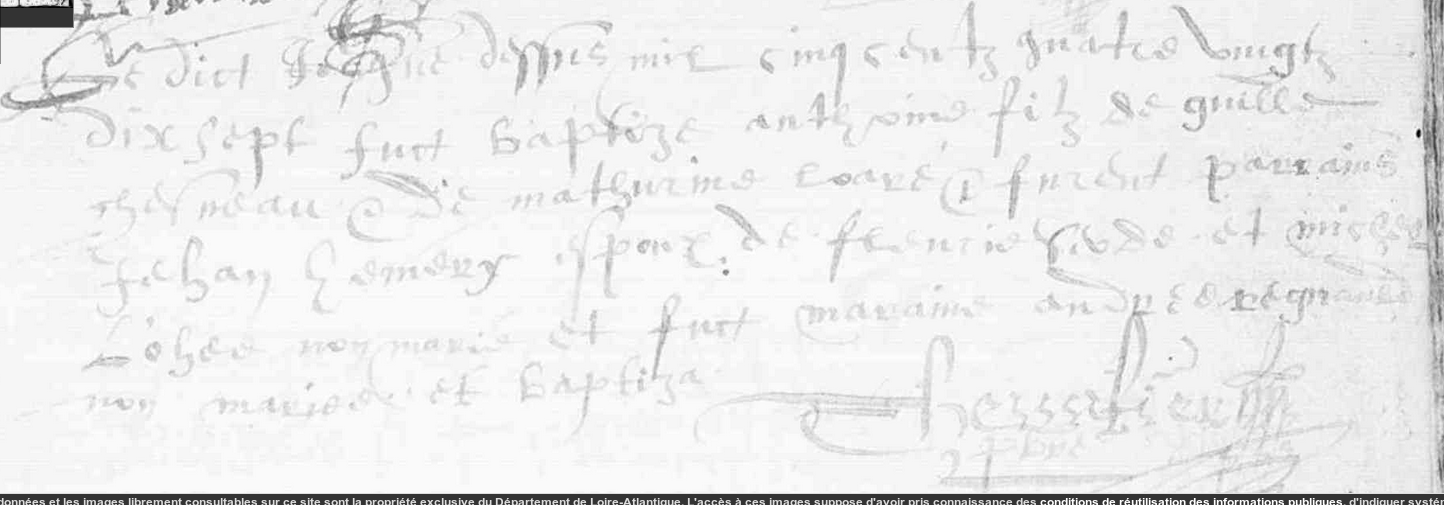 Le dict jour que dessus mil cinq centz quatre vingtz
dix sept fut baptizé anthoine filz de guille
chesneau & de mathurine Loaré & furent parrains
Jehan hemery espoux de et
Lohée non marié et fut maraine andrée regnaude
non mariée et baptiza
pbre
données et les images librement consultables sur ce site sont la propriété exclusive du Département de Loire-Atlantique. L'accès à ces images suppose d'avoir pris connaissance des conditions de réutilisation des informations publiques, d'indiquer systém